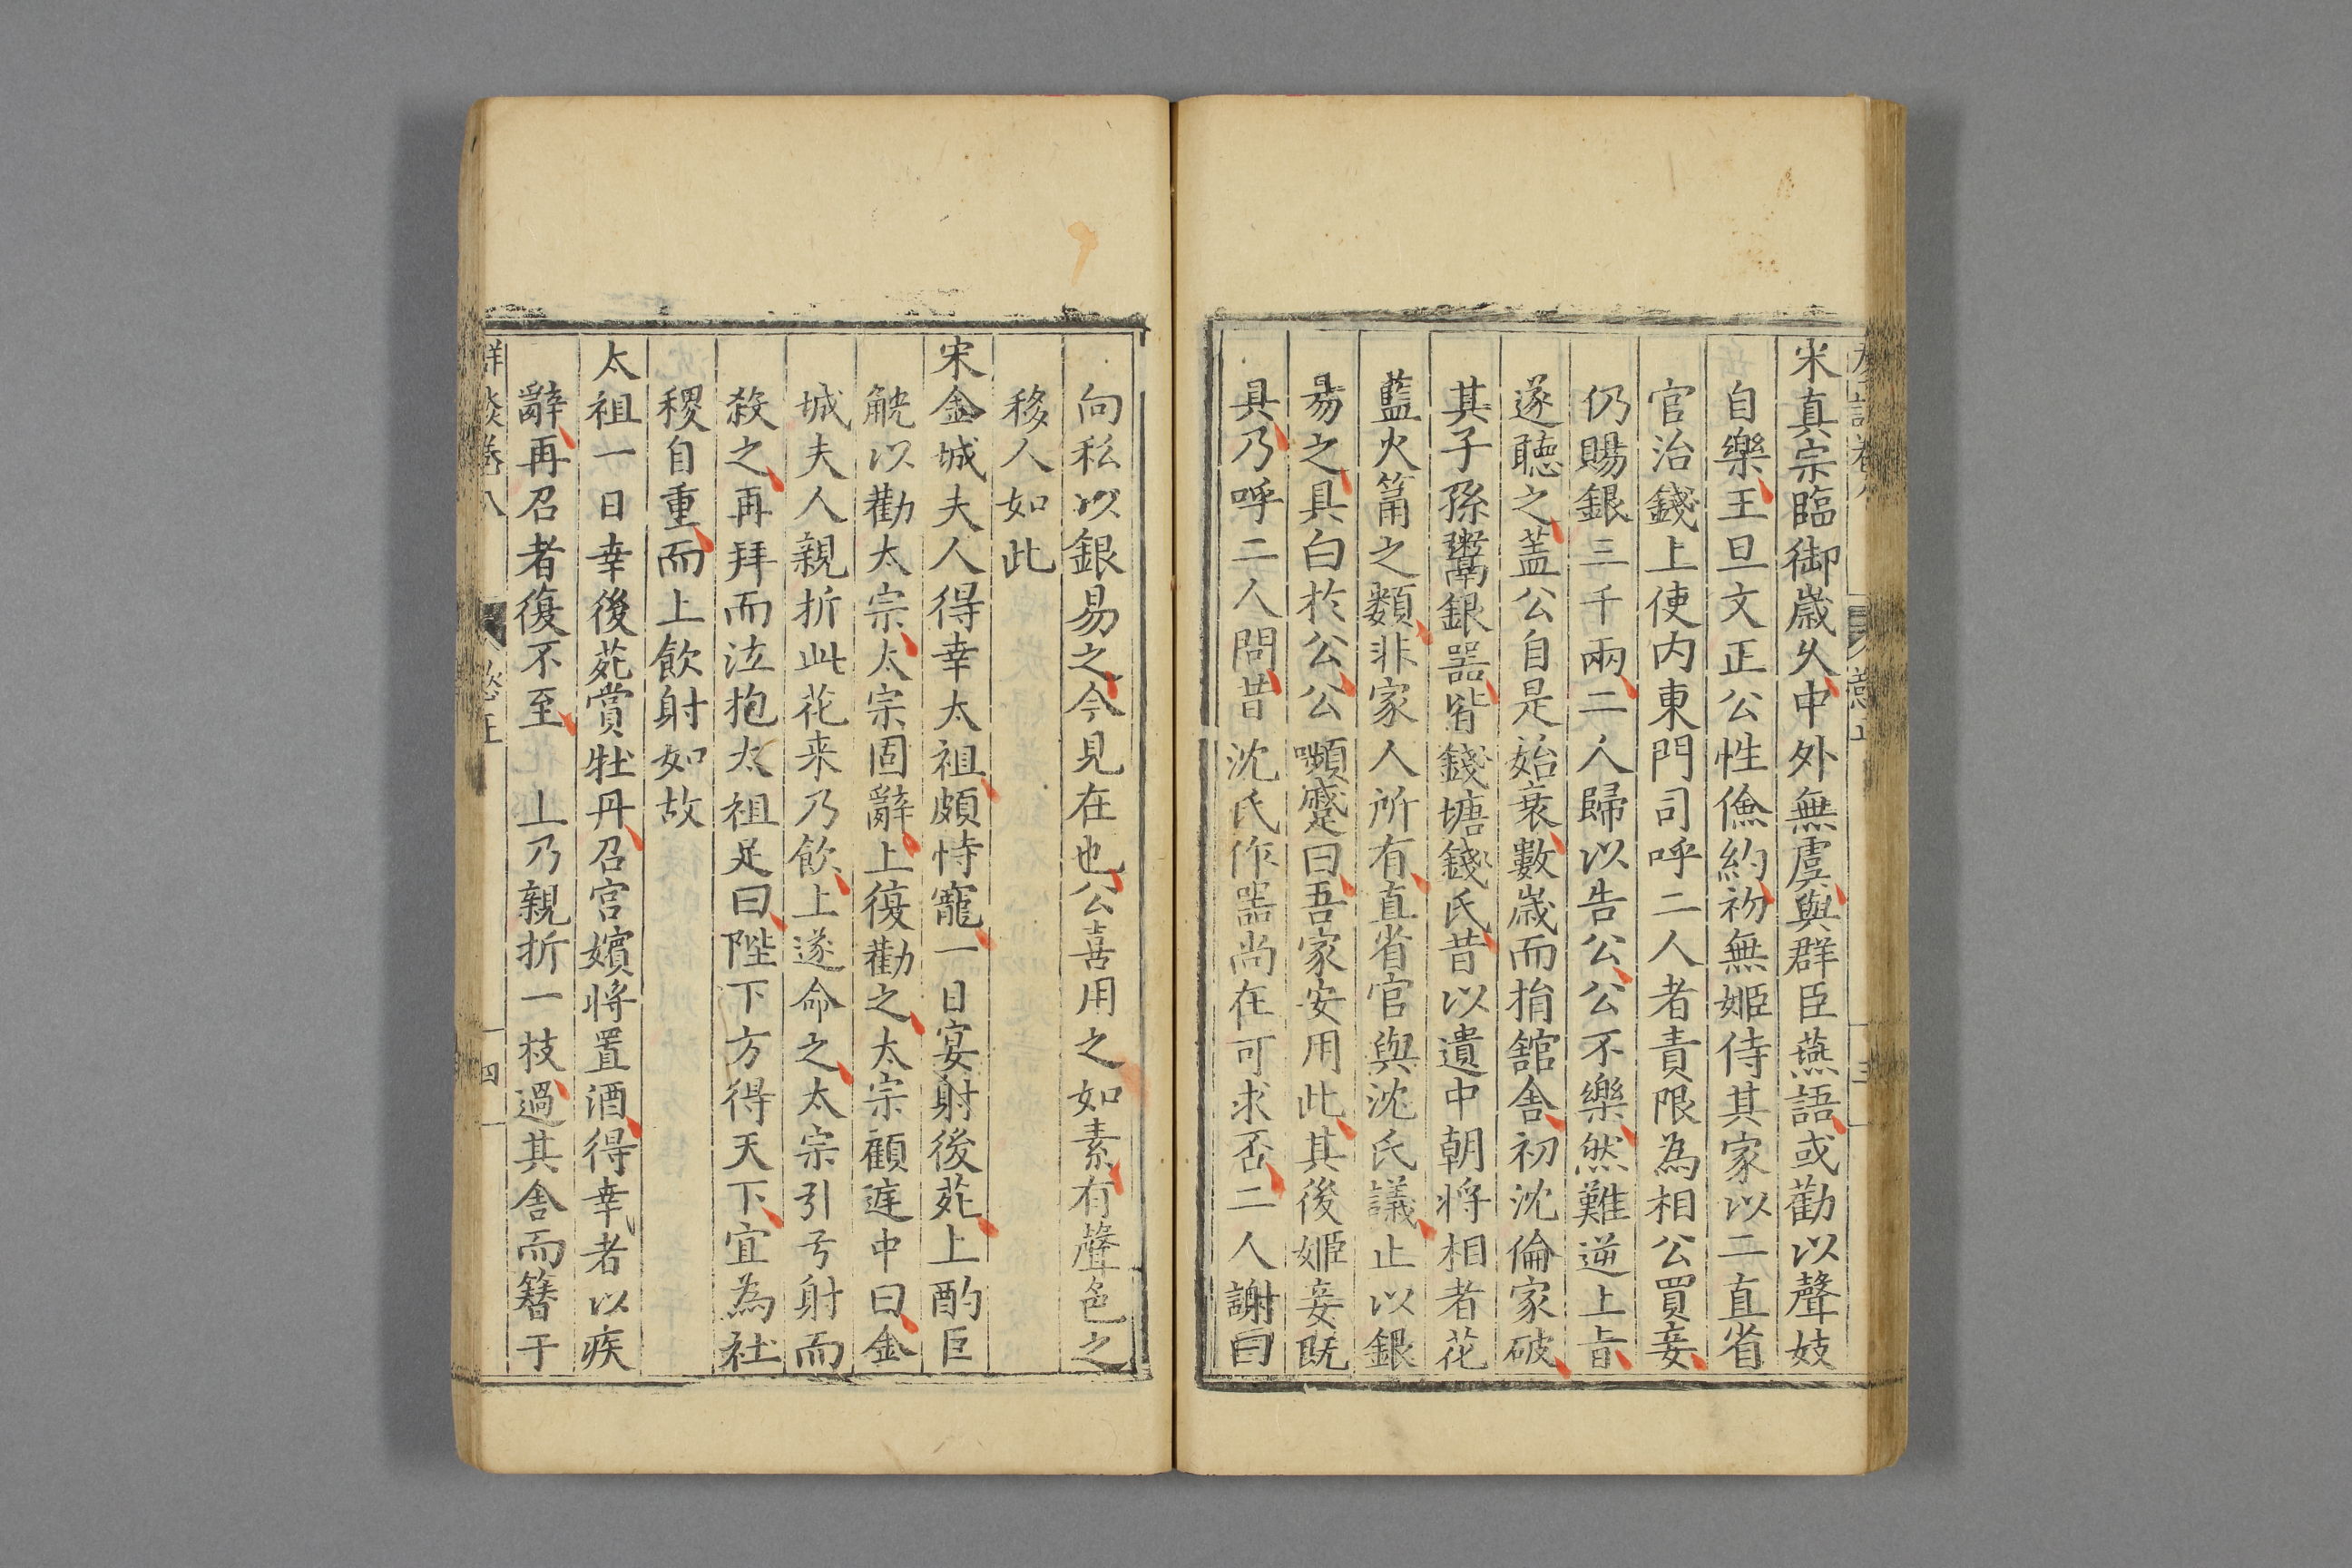 宋真宗臨御歲久中外無虞與群臣燕語或勸以聲妓
自樂王旦文正公性儉約初無姬侍其家以二直省
官治錢上使内東門司呼二人者責限為相公買妾
仍賜銀三千兩二人歸以告公公不樂然難逆上旨
遂聽之蓋公自是始衰數歲而捐舘舍初沈倫家破
其子孫鬻銀器皆錢塘錢氏昔以遺中朝將相者花
藍火筩之類非家人所有直省官與沈氏議止以銀
易之具白於公公嚬蹙曰吾家安用此其後姬妾既
具乃呼二人問昔沈氏作器尚在可求否二人謝曰
向私以銀易之今見在也公喜用之如素有聲色之
移人如此
宋金城夫人得幸太祖頗恃寵一日宴射後苑上酌巨
觥以勸太宗太宗固辭上復勸之太宗顧庭中曰金
城夫人親折此花来乃飲上遂命之太宗引弓射而
殺之再拜而泣抱太祖足曰陛下方得天下宜為社
稷自重而上飲射如故
太祖一日幸後苑賞牡丹召宮嬪將置酒得幸者以疾
辭再召者復不至上乃親折一枝過其舍而簪于
群談卷八
四